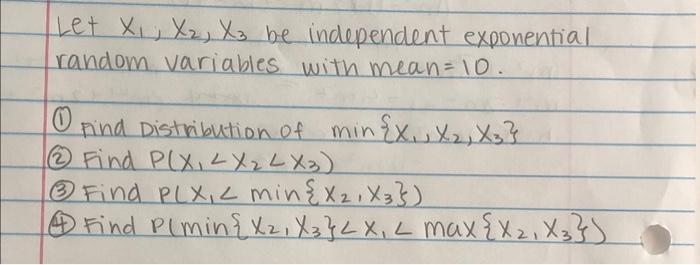 Let X₁, X₂, X₃ be independent exponential
random variables with mean=10.
① Find Distribution of min{X₁, X₂, X₃}
② Find P(X₁ < X₂ < X₃)
③ Find P(X₁ < min{X₂, X₃})
④ Find P(min{X₂, X₃} < X₁ < max{X₂, X₃})